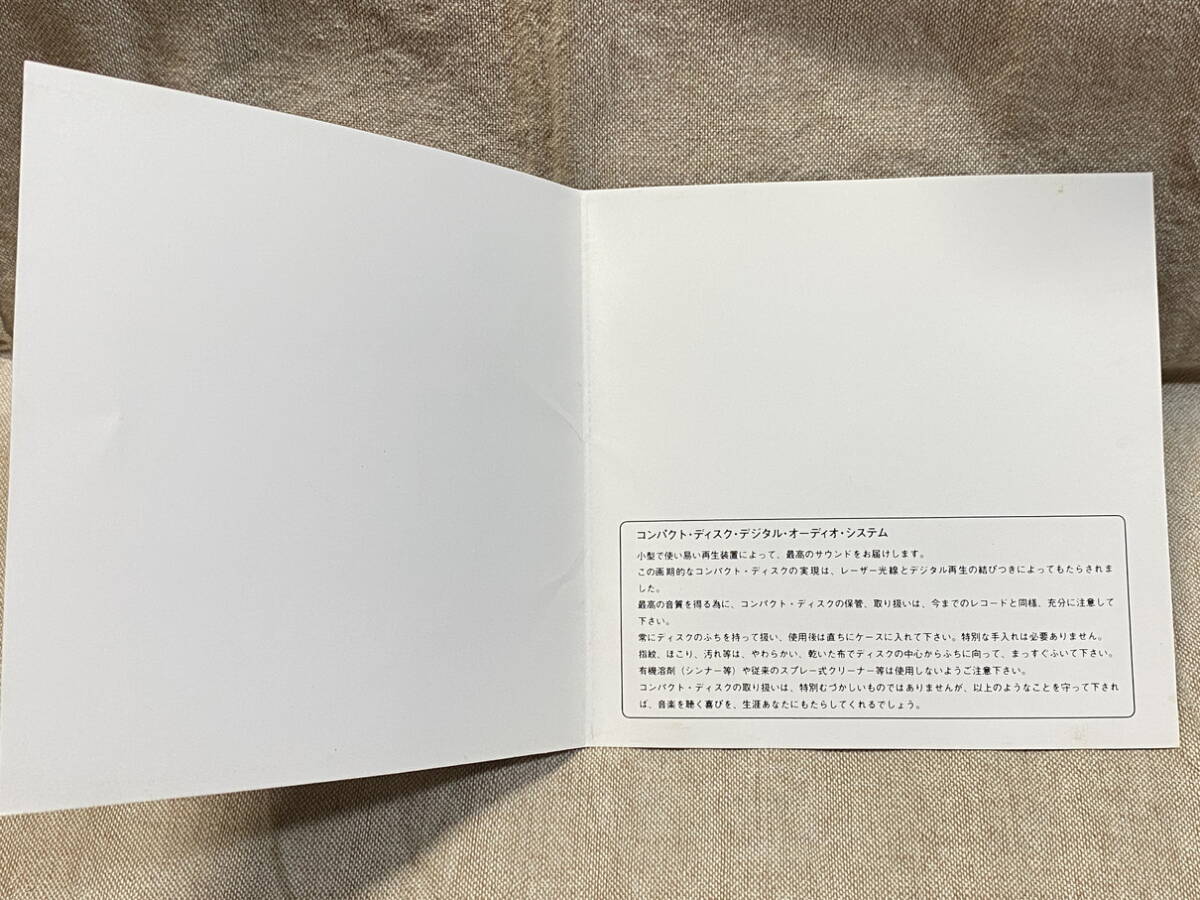 コンパクト・ディスク・デジタル・オーディオ・システム
小型で使い易い再生装置によって、最高のサウンドをお届けします。
この画期的なコンパクト・ディスクの実現は、レーザー光線とデジタル再生の結びつきによってもたらされま
した。
最高の音質を得る為に、コンパクト・ディスクの保管、取り扱いは、今までのレコードと同様、充分に注意して
下さい。
常にディスクのふちを持って扱い、使用後は直ちにケースに入れて下さい。特別な手入れは必要ありません。
指紋、ほこり、汚れ等は、やわらかい、乾いた布でディスクの中心からふちに向って、まっすぐふいて下さい。
有機溶剤（シンナー等）や従来のスプレー式クリーナー等は使用しないようご注意下さい。
コンパクト・ディスクの取り扱いは、特別むづかしいものではありませんが、以上のようなことを守って下され
ば、音楽を聴く喜びを、生涯あなたにもたらしてくれるでしょう。